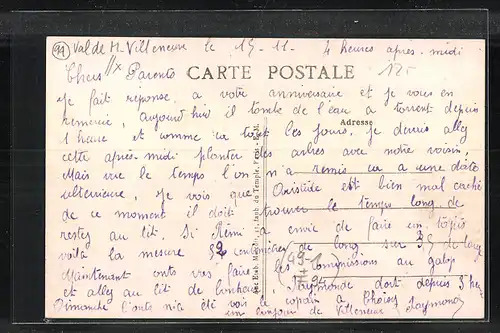 94
Val de M. Villeneuve le 15-11- 4 heures après-midi
Chers Parents
CARTE POSTALE
125
Je fait réponse a votre anniversaire et je vous en
remercie, aujourd'hui il tombe de l'eau a torrent depuis
1 heure et comme ca tous les jours, je devais aller
Adresse
cette après-midi planter des arbres avec notre voisin.
Mais vue le temps l'on n'a remis ca a une date
ulterieure, je vois que Aristide est bien mal caché
de ce moment il doit trouver le temps long de
rester au lit. Si Rémi a envie de faire un tapis
voilà la mesure 52 centimètres de long sur 35 de large
Maintenant on va vers faire les commissions au galop
et aller au lit de bonheur, Raymonde dort depuis 3 heures
Dimanche l'on a été voir le copain a Choisy Raymond
un bonjour de Villeneuve
49-1